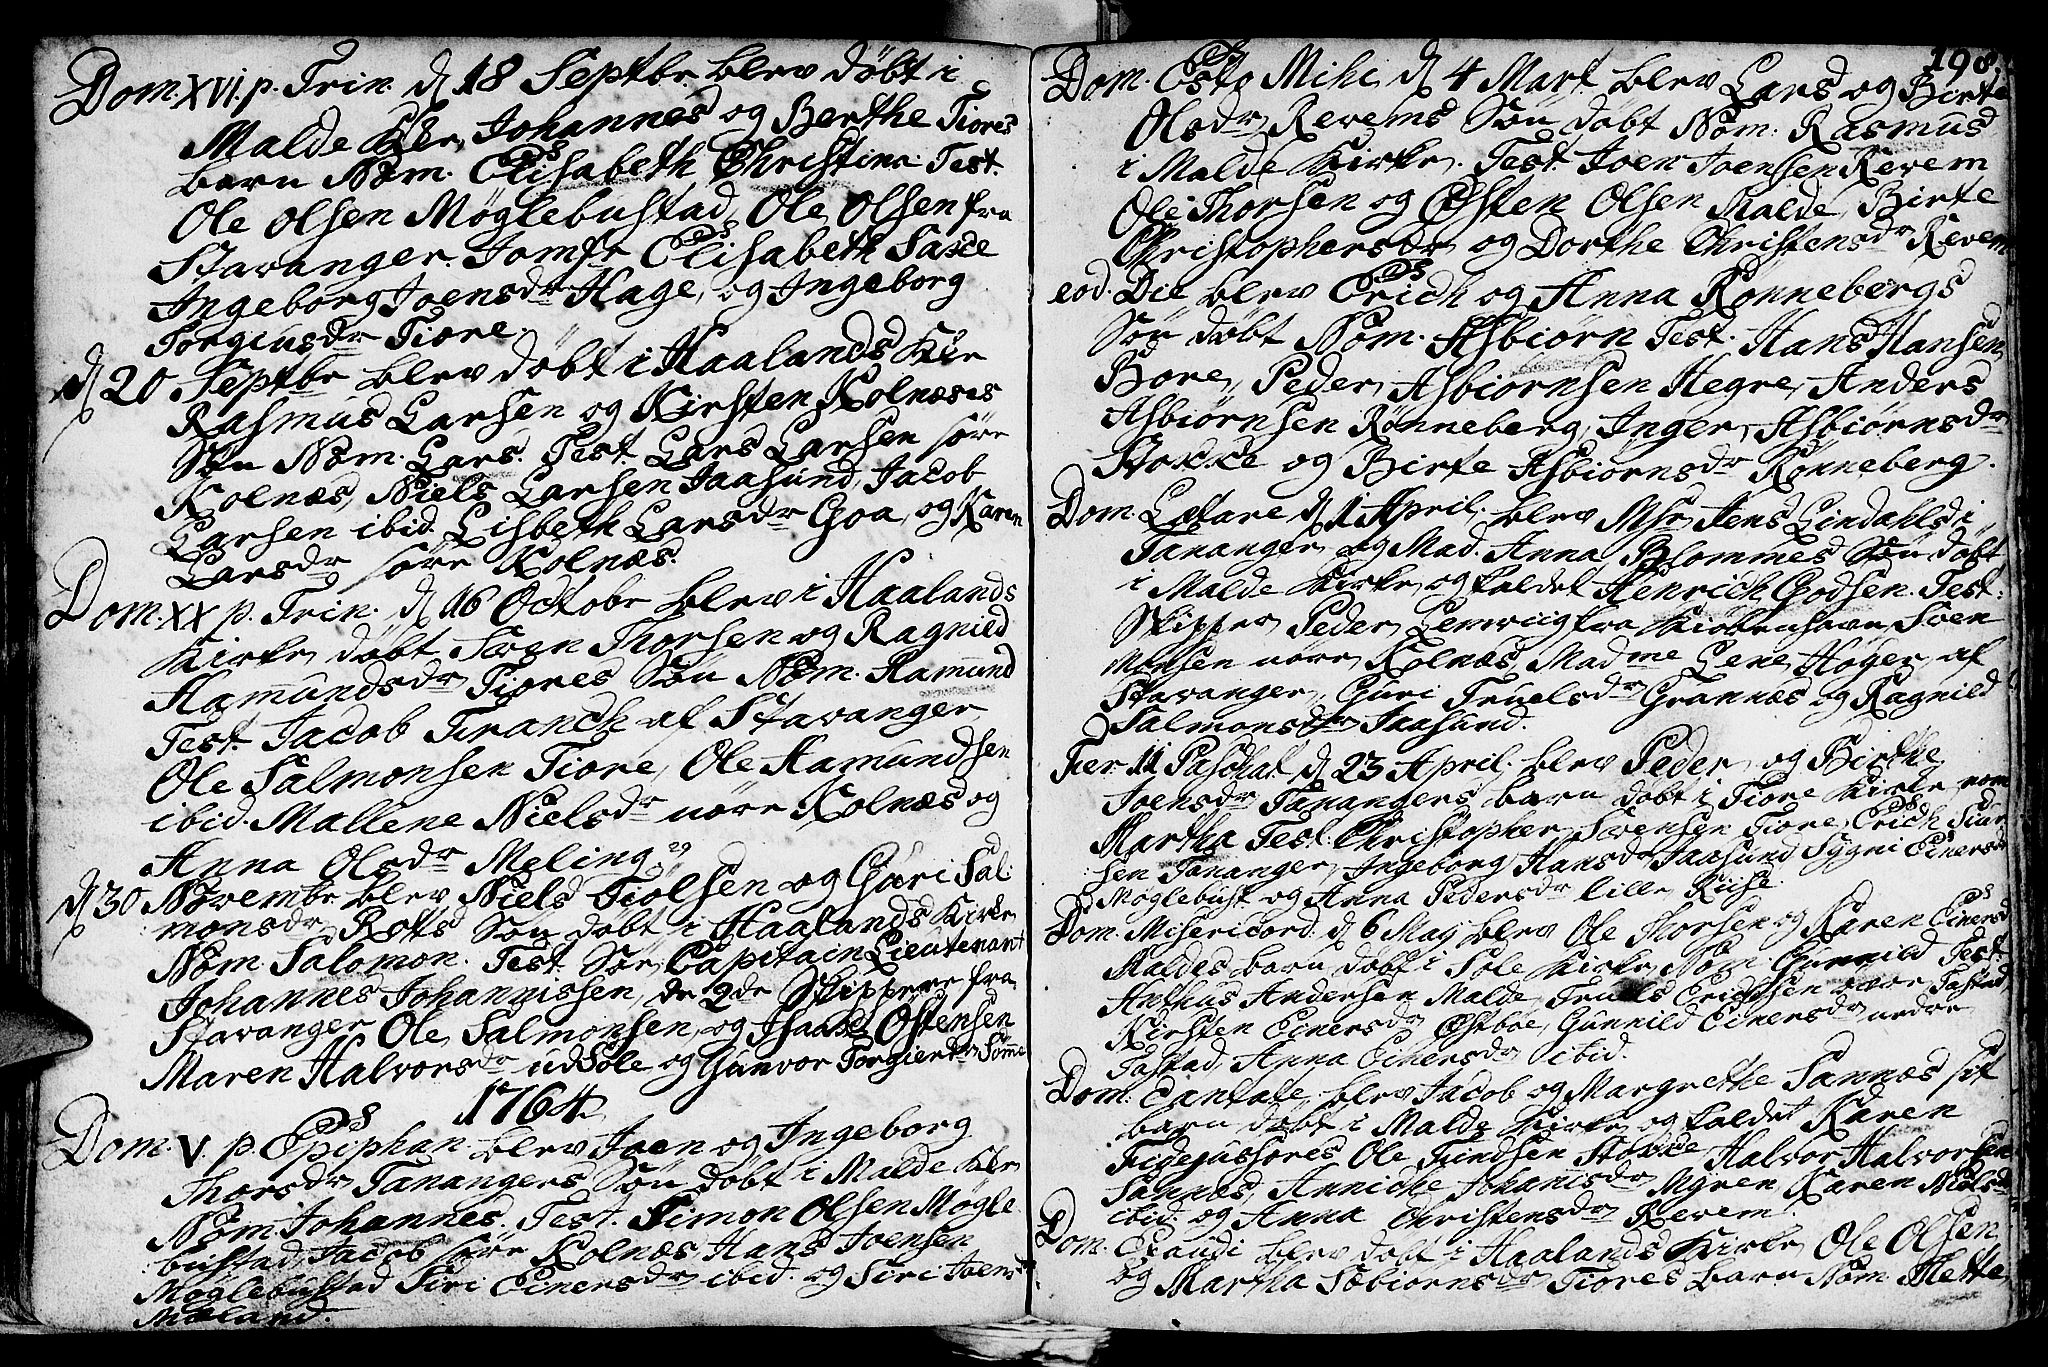 Dom. XVI. p. Trin. d 18 Septbr blev døbt i
Malde Kke Johannes og Berthe Tiores
barn Nom. Elisabeth Christine. Test.
Ole Olsen Møglebustad, Ole Olsen fra
Stavanger. Jomfr Elisabeth Saxe
Ingeborg Joensdr Hage, og Ingeborg
Torgiusdr Tiore.
d 20 Septbr blev døbt i Haalands Kir
Rasmus Larsen og Kirsten Kolnæses
Søn Nom. Lars. Test. Lars Larsen søre
Kolnæs, Niels Larsen Jaasund, Jacob
Larsen ibid. Lisbeth Larsdr Goa, og Karen
Larsdr søre Kolnæs.
Dom. XX p. Trin. d 16 Octobr blev i Haalands
Kirke døbt Sven Thorsen og Ragnild
Hamundsdr Tiores Søn Nom. Hamund
Test. Jacob Tranch af Stavanger
Ole Salmonsen Tiore, Ole Hamundsen
ibid. Mallene Nielsdr nøre Kolnæs og
Anna Olsdr Meling.
d 30 Novembr blev Niels Tiølsen og Guri Sal:
monsdr Rotts Søn døbt i Haalands Kirke
Nom. Salomon. Test. Sør Capitain Lieutenant
Johannes Johannissen, de 2de Skippere fra
Stavanger Ole Salmonsen, og Isaach Østensen
Maren Halvorsdr udSole og Gunvor Torgiersdr Sømme
1764
Dom. V. p. Epiphan. blev Joen og Ingeborg
Thorsdr Tanangers Søn døbt i Malde Kke
Nom. Johannes. Test. Simon Olsen Møgle
bustad, Jacob søre Kolnæs Hans Joensen
Møglebustad Siri Einersdr ibid. og Siri Joensdr
Mæland.
198
Dom. Esto Mihi d 4 Mart blev Lars og Birte
Olsdr Revems Søn døbt Nom. Rasmus
i Malde Kirke. Test. Joen Joensen Revem
Ole Thorsen og Østen Olsen Malde, Birte
Christophersdr og Dorthe Christensdr Revem
eod. Die blev Erich og Anna Rønnebergs
Søn døbt Nom. Asbiørn Test. Hans Hansen
Bore, Peder Asbiørnsen Hegre, Anders
Asbiørnsen Rønneberg, Inger Asbiørnsdr
Stokke og Birte Asbiørnsdr Rønneberg.
Dom. Lætare d 1 April. blev Msr Jens Lindahls i
Tananger og Mad. Anna Blommes Søn døbt
i Malde Kirke og kaldet Henrich Godsen. Test:
Skipper Peder Lemvig fra Kiøbenhavn Sven
Monsen nøre Kolnæs, Madme Lene Høger af
Stavanger, Guri Truelsdr Grannæs og Ragnild
Salmonsdr Jaasund.
Fer. II Paschal d 23 April. blev Peder og Birthe
Joensdr Tanangers barn døbt i Tiore Kirke nom
Martha Test. Christopher Svensen Tiore, Erich Siur
sen Tananger, Ingeborg Hansdr Jaasund Sygni Einersdr
Møglebust og Anna Pedersdr lille Riise.
Dom. Misericord. d 6 Maj blev Ole Thorsen og Karen Einersd
Maldes barn døbt i Sole Kirke Nom. Gunnild Test
Anthus Andersen Malde, Truels Erichsen nære Tastad
Kirsten Einersdr Østboe, Gunnild Einersdr nedre
Tastad, Anna Einersdr ibid.
Dom. Cantate blev Jacob og Margrethe Sannæs sit
barn døbt i Malde Kirke og kaldet Karen
Fidejussores Ole Tundsen Stokke Halvor Halvorsen
Sannæs, Anniche Johanisdr Myren Karen Nielsdr
ibid. og Anna Christensdr Revem.
Dom. Exaudi blev døbt i Haalands Kirke Ole Olsen
og Martha Sæbiornsdr Tiores barn Nom. Mette